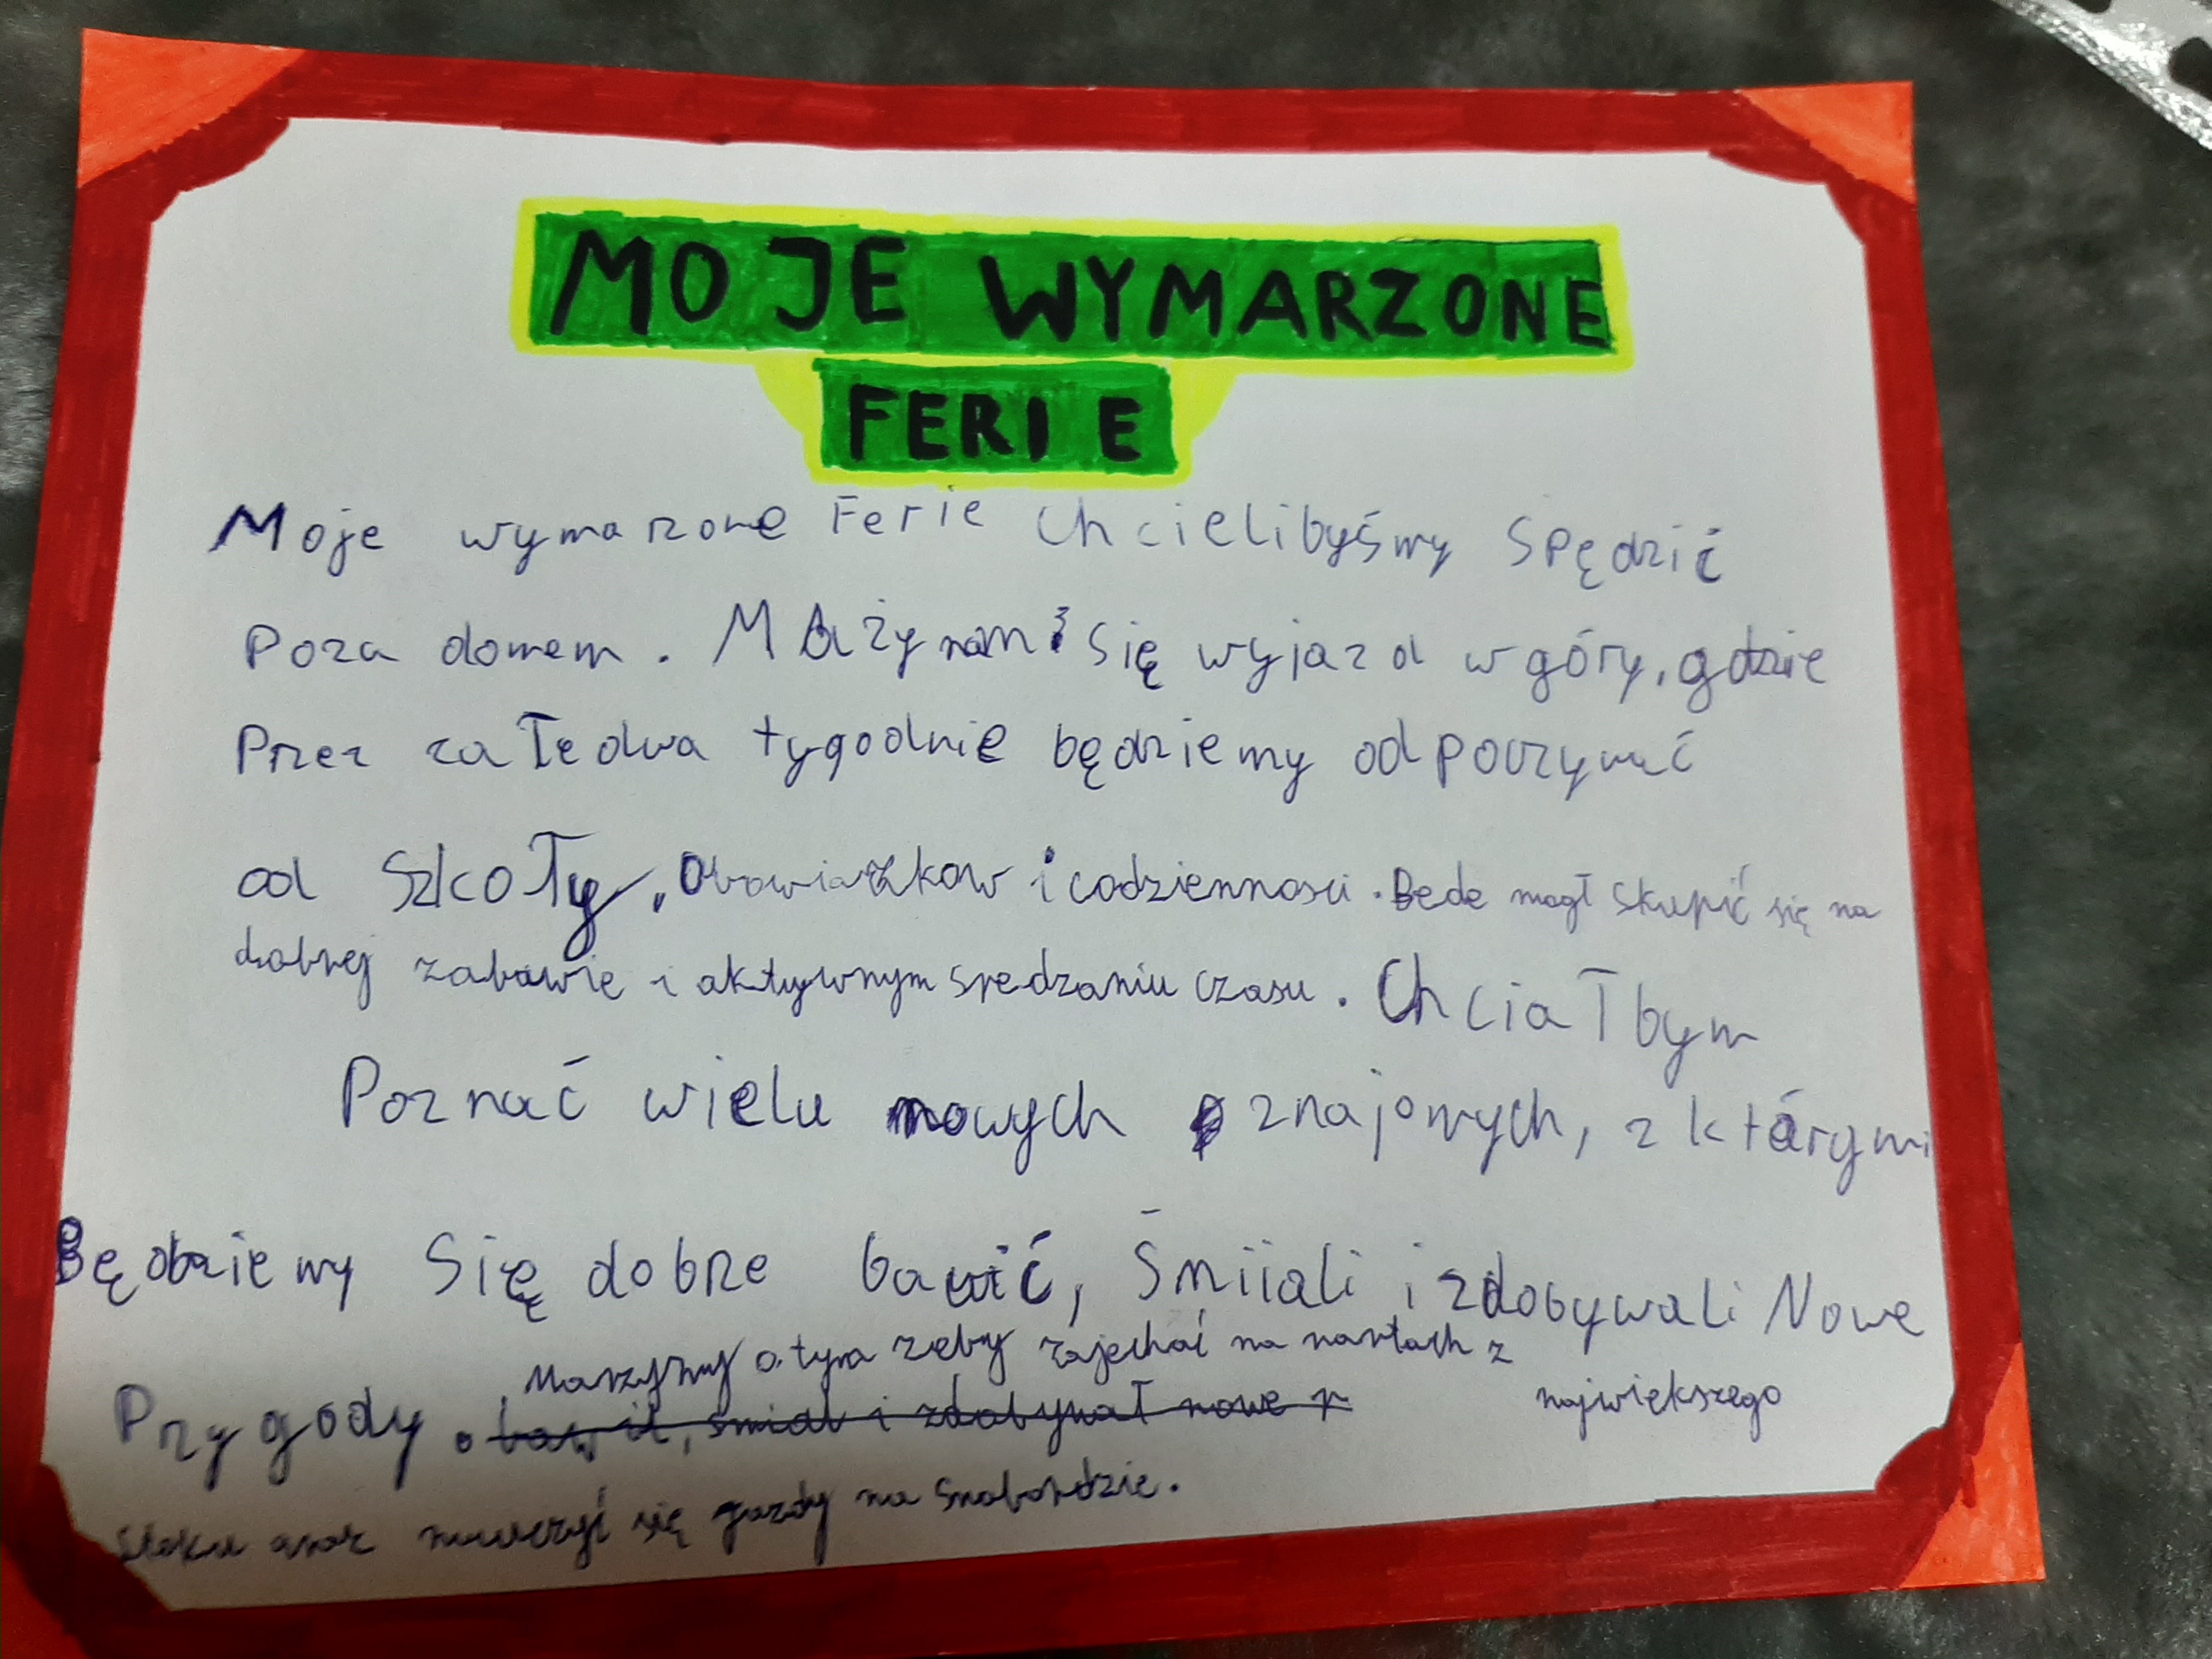 MOJE WYMARZONE
FERIE
Moje wymarzone Ferie Chcielibyśmy Spędzić
Poza domem. MAży nam się wyjazd w góry, gdzie
Przez całe dwa tygodnie będziemy odpoczywać
od Szkoły, obowiazkow i codziennosci. Bede mogł Skupić się na
dobrej zabawie i aktywnym spedzaniu czasu. Chciałbym
Poznać wielu nowych znajomych, z którymi
Będziemy Się dobrze bawić, Śmiiali i zdobywali Nowe
Marzymy o tym zeby zjechać na nartach z
największego
Przygody. bawił, śmiał i zdobywał nowe p
stoku oraz nauczyć się jazdy na Snobordzie.